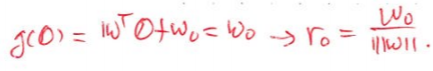 g(0) = w^T 0 + w_0 = w_0 → r_0 = w_0 / ||w||.